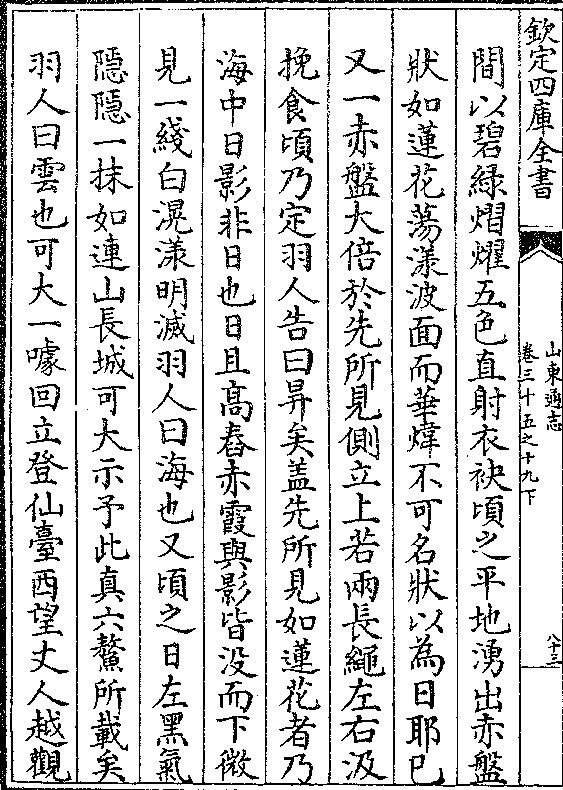 欽定四庫全書
山東通志
卷三十五之十九下
八十三
間以碧緑熠燿五色直射衣袂頃之平地湧出赤盤
狀如蓮花蕩漾波面而華煒不可名狀以為日耶已
又一赤盤大倍於先所見側立上若兩長繩左右汲
挽食頃乃定羽人告曰昇矣盖先所見如蓮花者乃
海中日影非日也日且髙舂赤霞與影皆没而下微
見一綫白滉漾明滅羽人曰海也又頃之日左黑氣
隱隱一抹如連山長城可大示予此真六鰲所載矣
羽人曰雲也可大一噱回立登仙臺西望丈人越觀